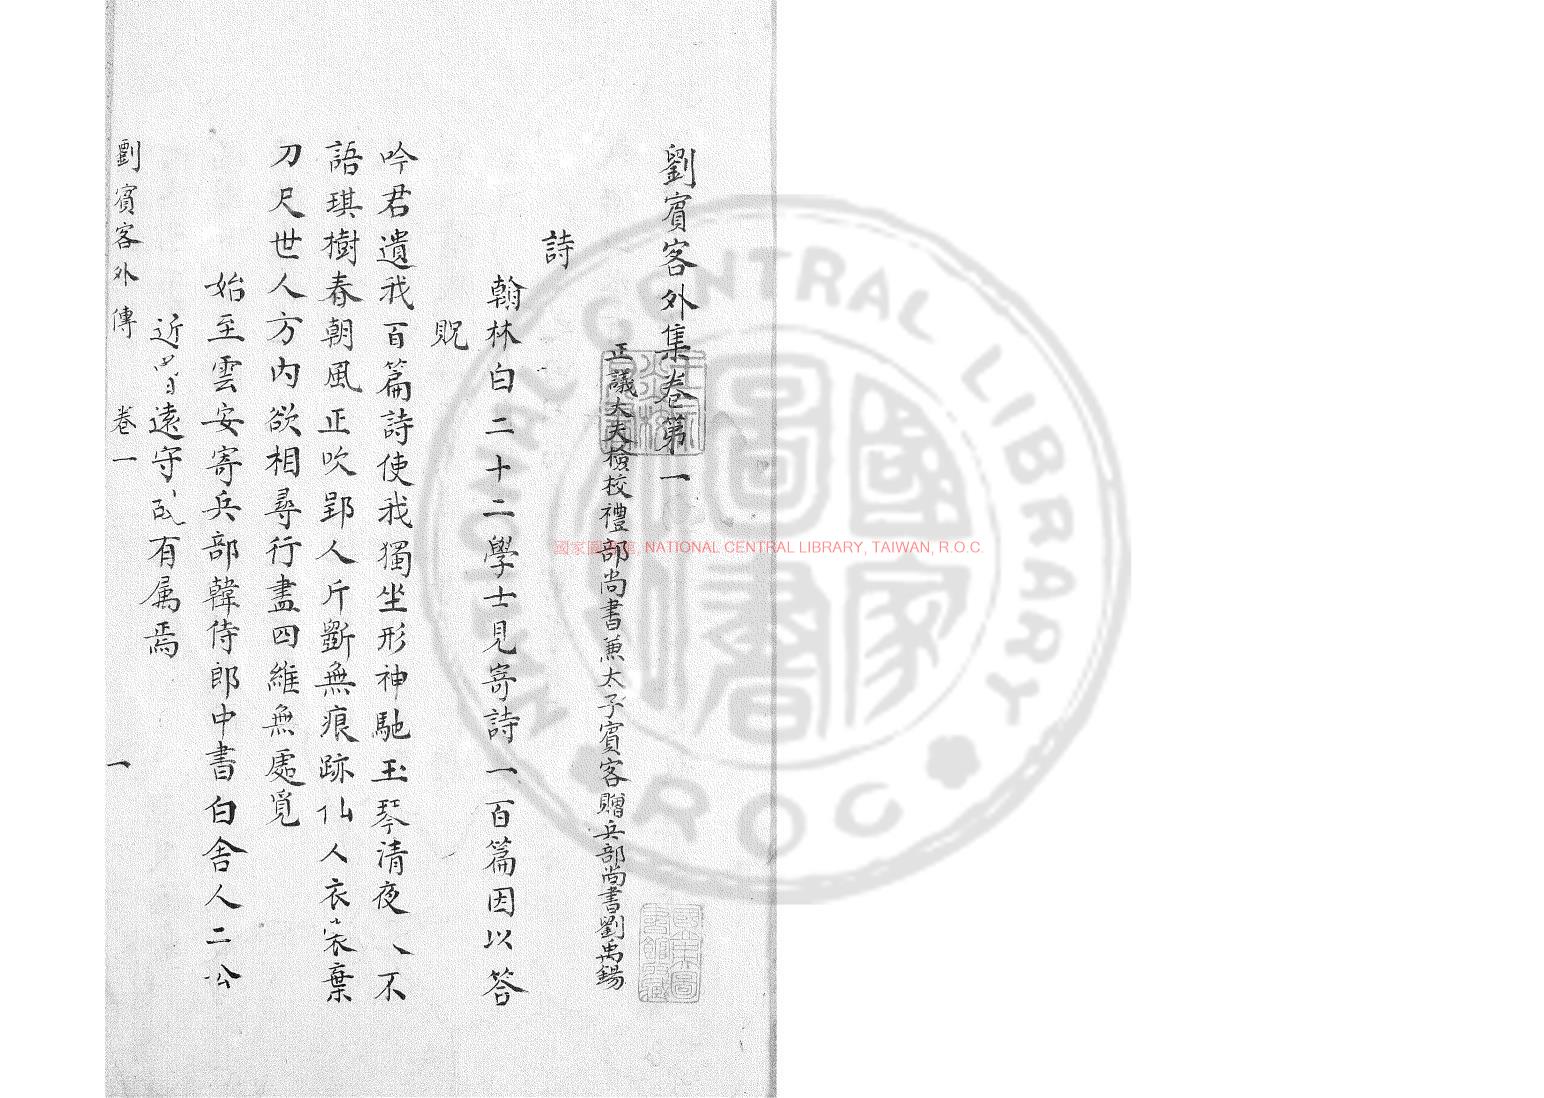 劉賓客外集卷第一
正議大夫檢校禮部尚書兼太子賓客贈兵部尚書劉禹錫
詩
翰林白二十二學士見寄詩一百篇因以答
貺
吟君遺我百篇詩使我獨坐形神馳玉琴清夜人不
語琪樹春朝風正吹郢人斤斲無痕跡仙人衣裳棄
刀尺世人方內欲相尋行盡四維無處覓
始至雲安寄兵部韓侍郎中書白舍人二公
近曾遠守故有属焉
劉賓客外傳 卷一 一
國家圖書館, NATIONAL CENTRAL LIBRARY, TAIWAN, R.O.C.
NATIONAL CENTRAL LIBRARY
ROC
國家圖書
國家圖書館藏